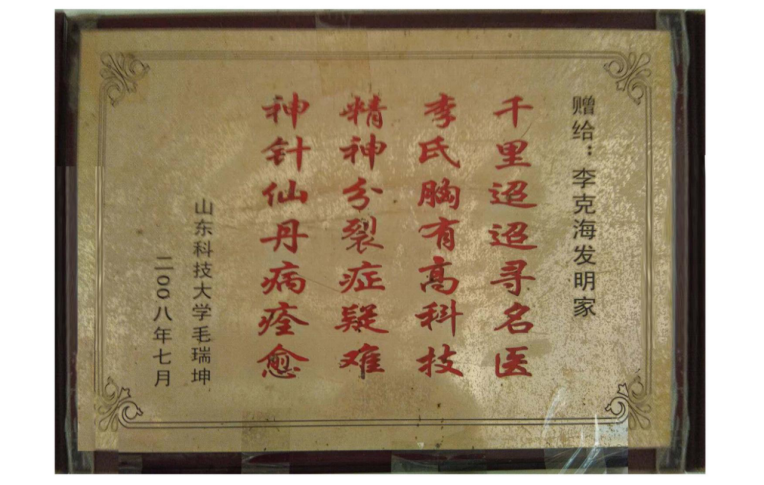 赠给：李克海发明家
千里迢迢寻名医
李氏胸有高科技
精神分裂症疑难
神针仙丹病痊愈
山东科技大学毛瑞坤
二00八年七月